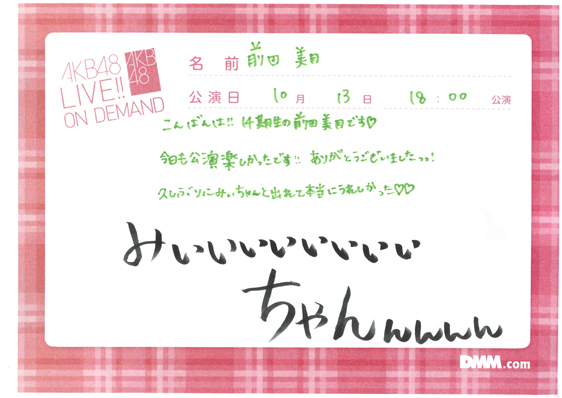 AKB48
LIVE!!
ON DEMAND
AKB
48
名前 前田 美月
公演日 10月 13日 18:00 公演
こんばんは!! 14期生の前田美月です♡
今日も公演楽しかったです!! ありがとうございましたっっ!
久しぶりにみぃちゃんと出れて本当にうれしかった♡♡
みぃぃぃぃぃぃぃぃ
ちゃんんんんん
DMM.com